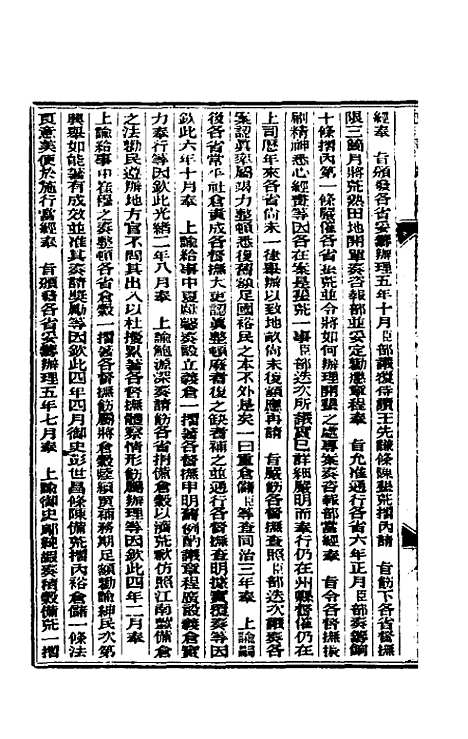 經奉　旨頒發各省妥籌辦理五年十月臣部議復侍讀王先謙條陳墾荒摺內請　旨飭下各省督撫
限三箇月將荒熟田地開單奏咨報部並安定勸懲章程奏　旨允准通行各省六年正月臣部奏籌餉
十條摺內第一條嚴催各省墾荒並令將如何辦理開墾之處專案奏咨報部當經奉　旨令各督撫振
刷精神悉心經營等因各在案是墾荒一事臣部迭次所議實已詳細嚴明而奉行仍在州縣督催仍在
上司歷年來各省尚未一律舉辦以致地畝尚未復額應再請　旨嚴飭各督撫查照臣部迭次議奏各
案認真察屬竭力整頓悉復舊額足國裕民之本不外是矣一曰重倉儲臣等查同治三年奉　上諭嗣
後各省常平社倉責成各督撫大吏認真整頓庥者復之缺者補之並通行各督撫查明據實覆奏等因
欽此六年十月奉　上諭給事中夏獻馨奏設立義倉一摺著各督撫申明舊例酌議章程廣設義倉實
力奉行等因欽此光緒二年八月奉　上諭鮑源深奏請飭各省捐備倉穀以濟荒歉仿照江南豐備倉
之法勸民遵辦地方官不問其出入以杜擾累著各督撫體察情形飭屬辦理等因欽此四年二月奉
上諭給事中崔穆之奏整頓各省倉穀一摺著各督撫飭屬將倉穀盤項買補務期足額勸諭紳民次第
興舉如能著有成效並准其奏請獎勵等因欽此四年四月御史彭世昌條陳備荒摺內裕倉儲一條法
良意美便於施行當經奉　旨頒發各省妥籌辦理五年七月奉　上諭御史鄔純嘏奏積穀備荒一摺